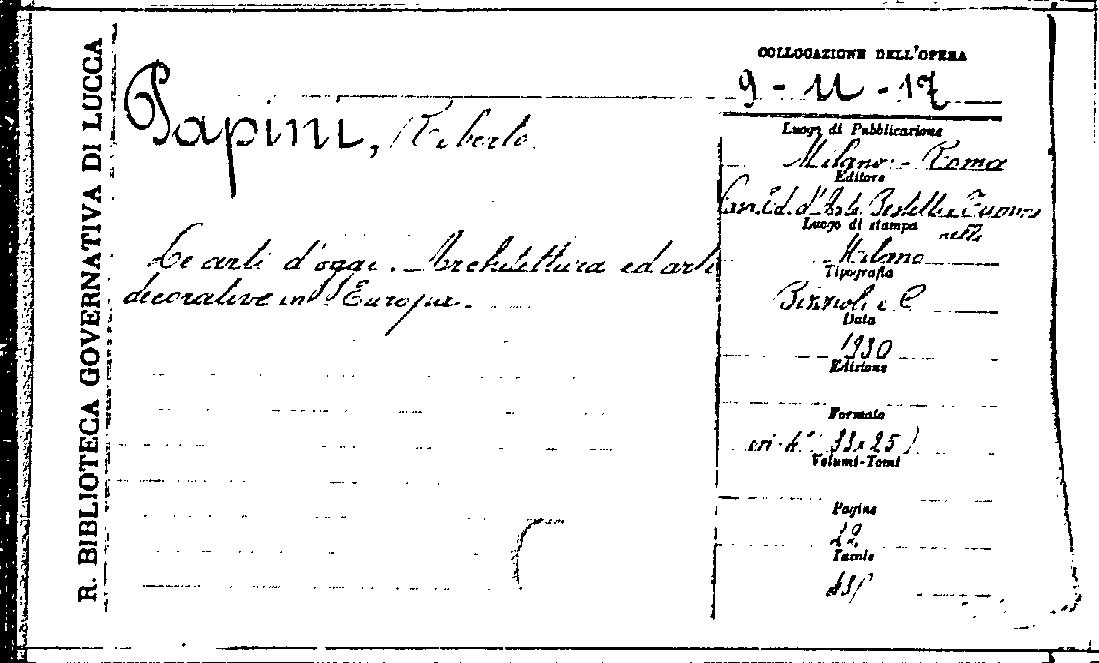 R. BIBLIOTECA GOVERNATIVA DI LUCCA
Papini, Roberto
Le arti d'oggi. Architettura ed arti
decorative in Europa.
COLLOCAZIONE DELL'OPERA
9 - 11 - 17
Luogo di Pubblicazione
Milano - Roma
Editore
Cas. Ed. d'Arte Bestetti e Tummi
nelli
Luogo di stampa
Milano
Tipografia
e C.
Data
1930
Edizione
Formato
in-4° (33x25)
Volumi-Tomi
Pagine
22
Tavole